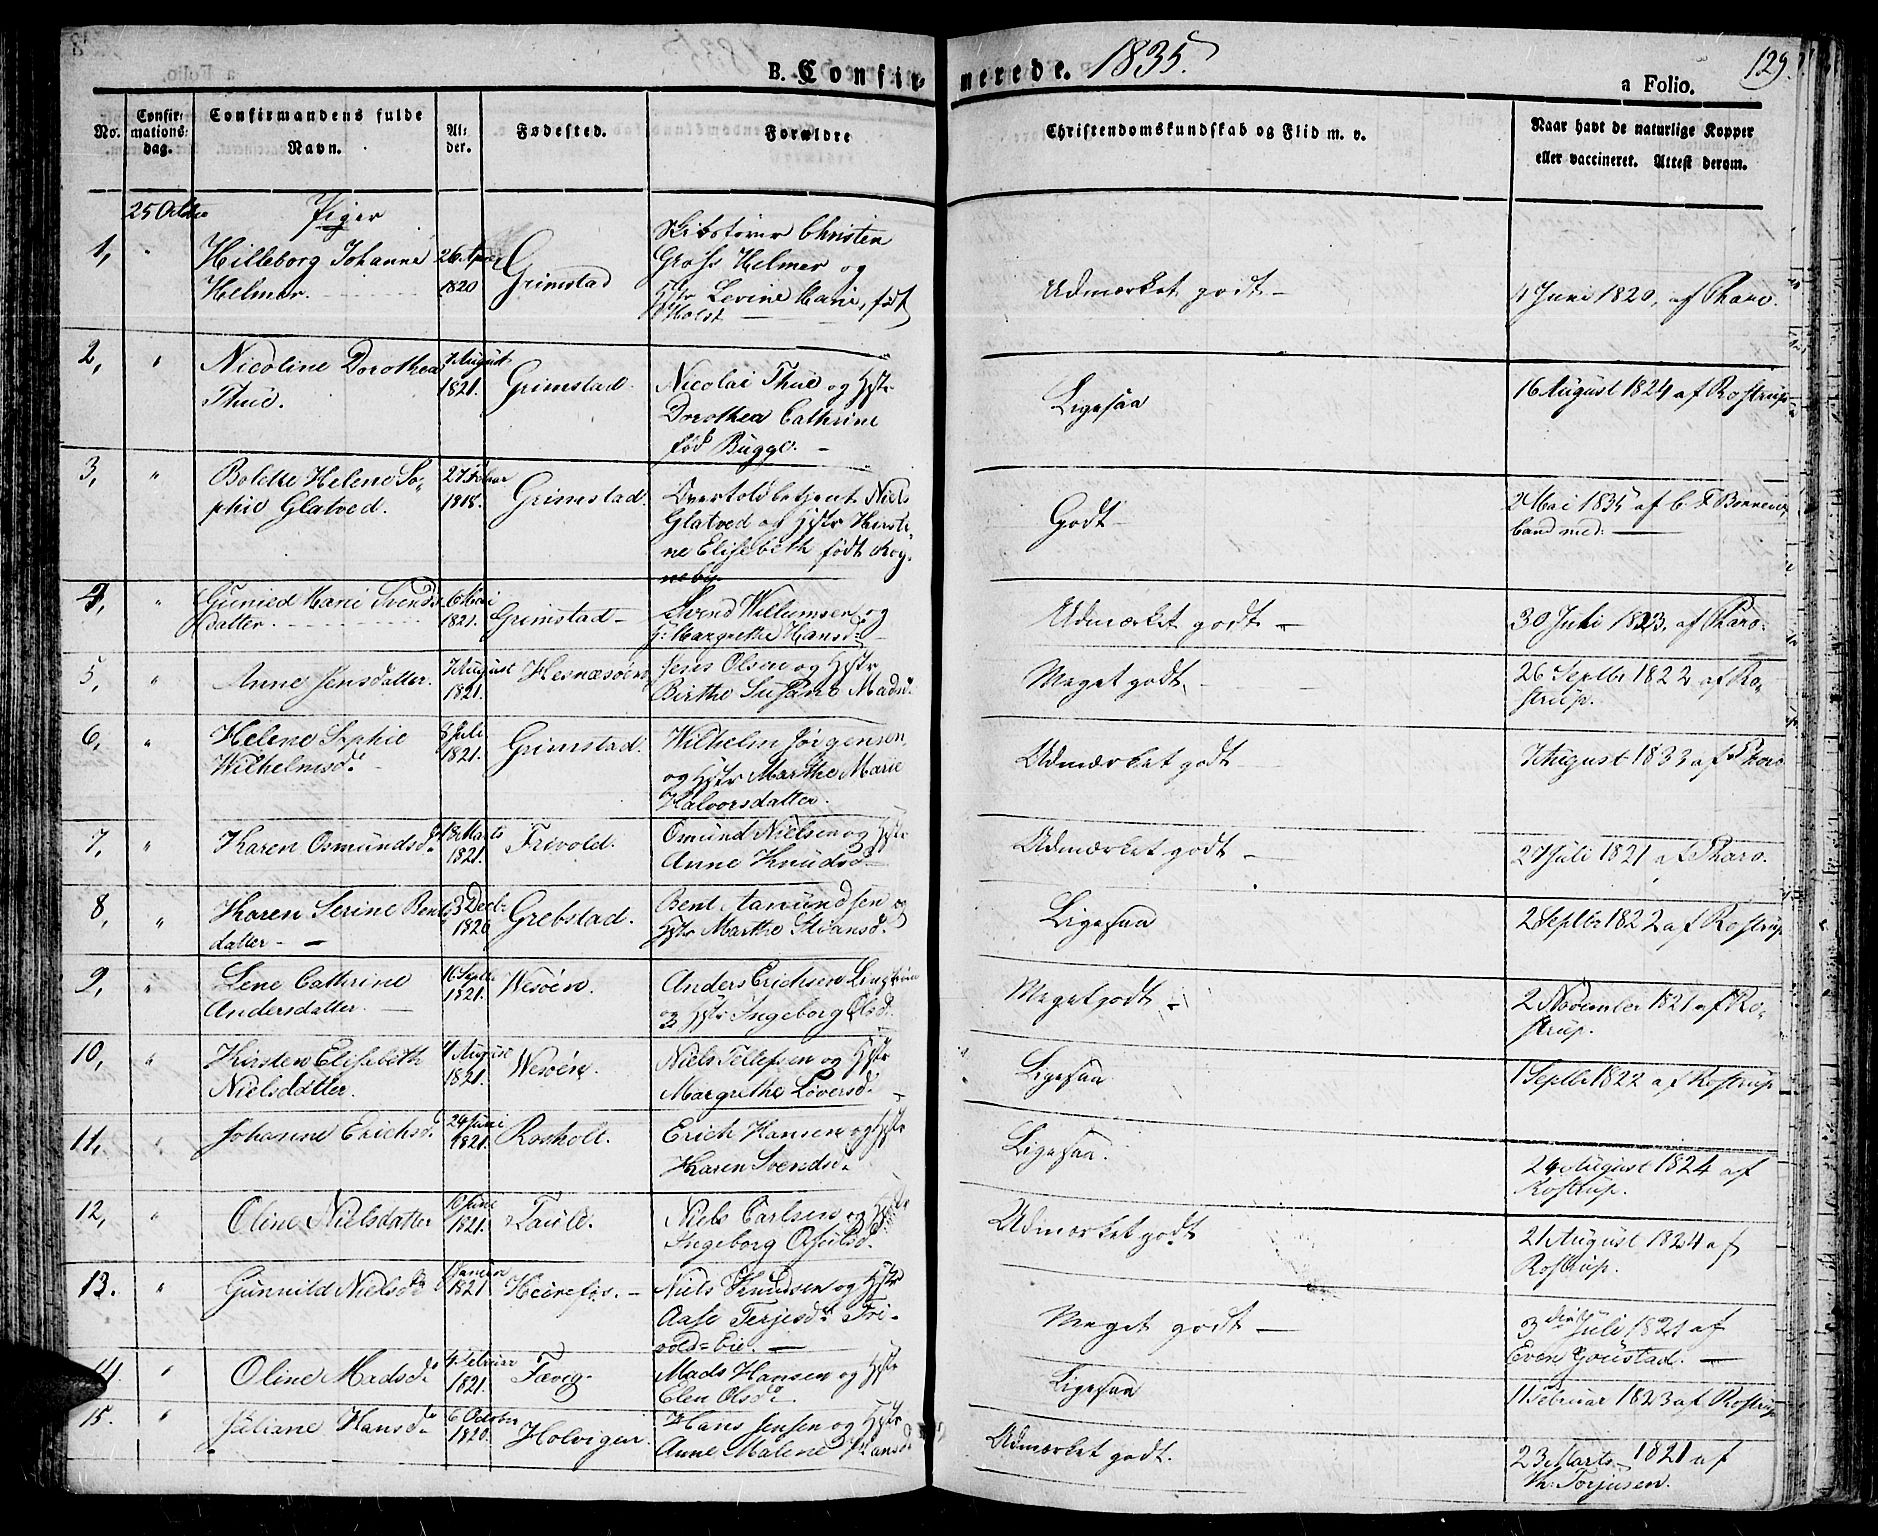 B. Confirmerede. 1835. 129.
a Folio.
No. Confirmationsdag. Confirmandens fulde Navn. Alder. Fødested. Forældre Christendomskundskab og Flid m. v. Naar havt de naturlige Kopper eller vaccineret. Attest derom.
25 Octbr Piger
1, " Hilleborg Johanne 26 April Grimstad Christen
Helmer. 1820 Gross Helmer og Udmærket godt – 4 Juni 1820, af Tharo.
Hstr Levine Marie, født
Holst
2, " Nicoline Dorothea 7 August Grimstad. Nicolai Thue og Hstr Ligesaa 16 August 1824 af Rostrup
Thue. 1821. Dorothea Cathrine
fød Bugge. –
3, " Bolette Helene So- 27 Febuar Grimstad. Overtoldbetjent Niels Godt – 2 Mai 1835 af C. F. Bonnevie
phie Glatved. 1818. Glatved og Hstr Kirsti- cand med: –
ne Elisebeth født Rog-
neby.
4, " Gunild Marie Svends 6 Mai Grimstad – Svend Willumsen og Udmærket godt – 30 Juli 1823, af Tharo.
datter. 1821. H: Margrethe Hansd.
5, " Anne Jensdatter. 7 August Hesnæsøen Jens Olsen og Hstr Meget godt, – 26 Septbr 1822 af Ro-
1821. Birthe Susane Madsd. strup.
6, " Helene Sophie 8 Juli Grimstad. Wilhelm Jørgensen, Udmærket godt – 7 August 1833 af Tharo
Wilhelmsd. 1821. og Hstr Marthe Marie
Halvorsdatter.
7, " Karen Osmundsd. 18 Marts Frivold. Osmund Nielsen og Hstr Udmærket godt – 27 Juli 1821 af Tharo.
1821. Anne Knudsd.
8, " Karen Serine Bent 3 Decbr Grebstad. Bent Aamundsen og Ligesaa 2 Septbr 1822 af Rostrup
datter – – 1820 Hstr Marthe
9, " Lene Cathrine 16 Septbr Wesøen. Anders Erichsen Meget godt – 2 November 1821 af Ro-
Andersdatter. – 1821. og Hstr Ingeborg Olsd. strup.
10, " Kirsten Elisabeth 4 August Wesøen. Niels Tellefsen og Hstr Ligesaa 1 Septbr 1822 af Rostrup
Nielsdatter. 1821. Margrethe Løversd. –
11, " Johanne Erichsd. 24 Juni Rosholt. Erich Hansen og Hstr Ligesaa. 24 August 1824 af
1821. Karen Svendsd. Rostrup.
12, " Oline Nielsdatter 10 Juni Taule. Niels Carlsen og Hstr Udmærket godt 21 August 1824 af
1821. Ingeborg Osulsd. Rostrup.
13. " Gunnild Nielsd. Januar Heirefos. – Niels Knudsen og Hstr Meget godt – 3 Juli 1821 af
1821 Aase Terjesd. Fri- Even Goustad. –
vold-Eie. –
14. " Oline Madsd. 4 Februar Fævig. Mads Hansen og Hstr Ligesaa 11 Februar 1823 af Rostrup
1821. Elen Olsd.
15. " Juliane Hansd. 6 October Holvigen. Hans Jensen og Hstr Udmærket godt. 23 Marts 1821 af
1820. Anne Malene Hansd. Torjusen.